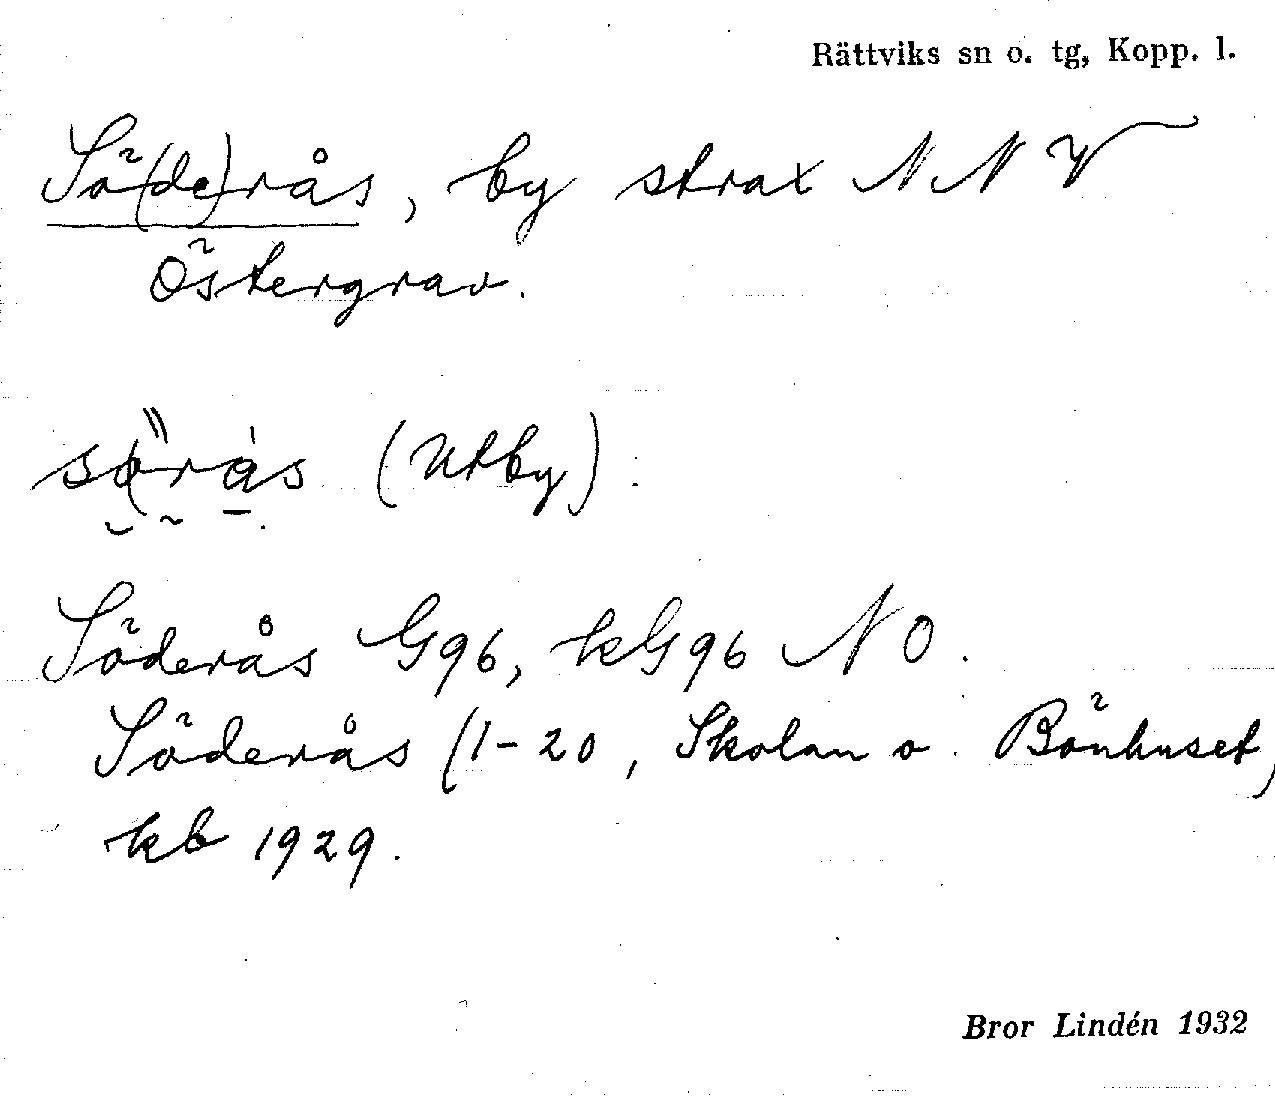 Rättviks sn o. tg, Kopp. l.
Sö(de)rås, by strax NNV
Östergrav.
(Utby).
Söderås G96, kG96 NO.
Söderås (1-20, Skolan o. Bönhuset)
kb 1929.
Bror Lindén 1932